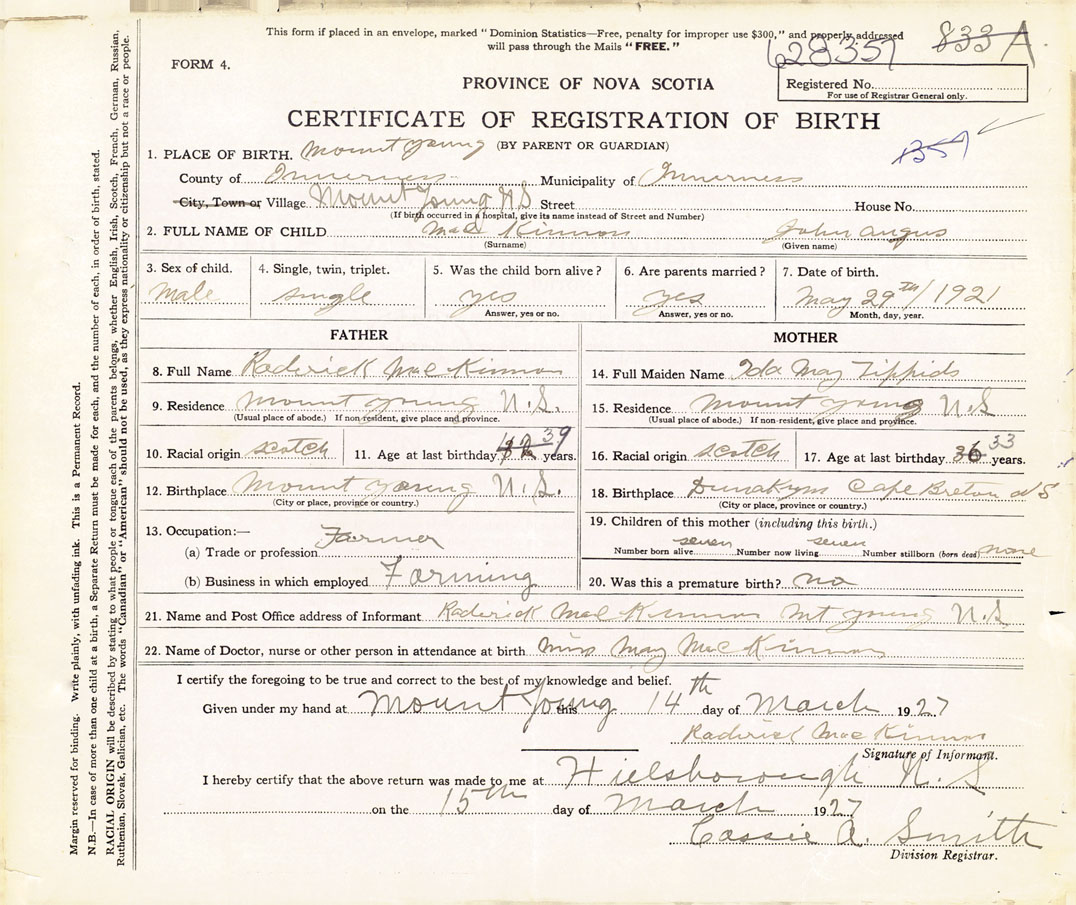 This form if placed in an envelope, marked "Dominion Statistics—Free, penalty for improper use $300," and properly addressed
will pass through the Mails "FREE."
62835 833 A
FORM 4.
PROVINCE OF NOVA SCOTIA
Registered No.
For use of Registrar General only.
CERTIFICATE OF REGISTRATION OF BIRTH
(BY PARENT OR GUARDIAN)
1. PLACE OF BIRTH. Mount young
County of Inverness Municipality of Inverness
City, Town or Village Mount Young N S Street House No.
(If birth occurred in a hospital, give its name instead of Street and Number)
2. FULL NAME OF CHILD Mac Kinnon John Angus
(Surname) (Given name)
3. Sex of child. 4. Single, twin, triplet. 5. Was the child born alive? 6. Are parents married? 7. Date of birth.
male single yes yes May 29th/1921
Answer, yes or no. Answer, yes or no. Month, day, year.
FATHER MOTHER
8. Full Name Roderick Mac Kinnon 14. Full Maiden Name Ida May Tippids
9. Residence Mount young N.S. 15. Residence Mount young N.S
(Usual place of abode.) If non-resident, give place and province. (Usual place of abode.) If non-resident, give place and province.
10. Racial origin scotch 11. Age at last birthday 39 years. 16. Racial origin scotch 17. Age at last birthday 36 33 years.
12. Birthplace Mount young N.S. 18. Birthplace Cape Breton N S
(City or place, province or country.) (City or place, province or country.)
13. Occupation:— 19. Children of this mother (including this birth.)
(a) Trade or profession Farmer Number born alive seven Number now living seven Number stillborn (born dead) none
(b) Business in which employed Farming 20. Was this a premature birth? no
21. Name and Post Office address of Informant Roderick Mac Kinnon Mt young N.S
22. Name of Doctor, nurse or other person in attendance at birth Miss May Mac Kinnon
I certify the foregoing to be true and correct to the best of my knowledge and belief.
Given under my hand at Mount Young this 14th day of March 1927
Roderick Mac Kinnon
Signature of Informant.
I hereby certify that the above return was made to me at Hillsborough N. S
on the 15th day of March 1927
Cassie A. Smith
Division Registrar.
Margin reserved for binding. Write plainly, with unfading ink. This is a Permanent Record.
N.B.—In case of more than one child at a birth, a Separate Return must be made for each, and the number of each, in order of birth, stated.
RACIAL ORIGIN will be described by stating to what people or tongue each of the parents belongs, whether English, Irish, Scotch, French, German, Russian,
Ruthenian, Slovak, Galician, etc. The words "Canadian" or "American" should not be used, as they express nationality or citizenship but not a race or people.